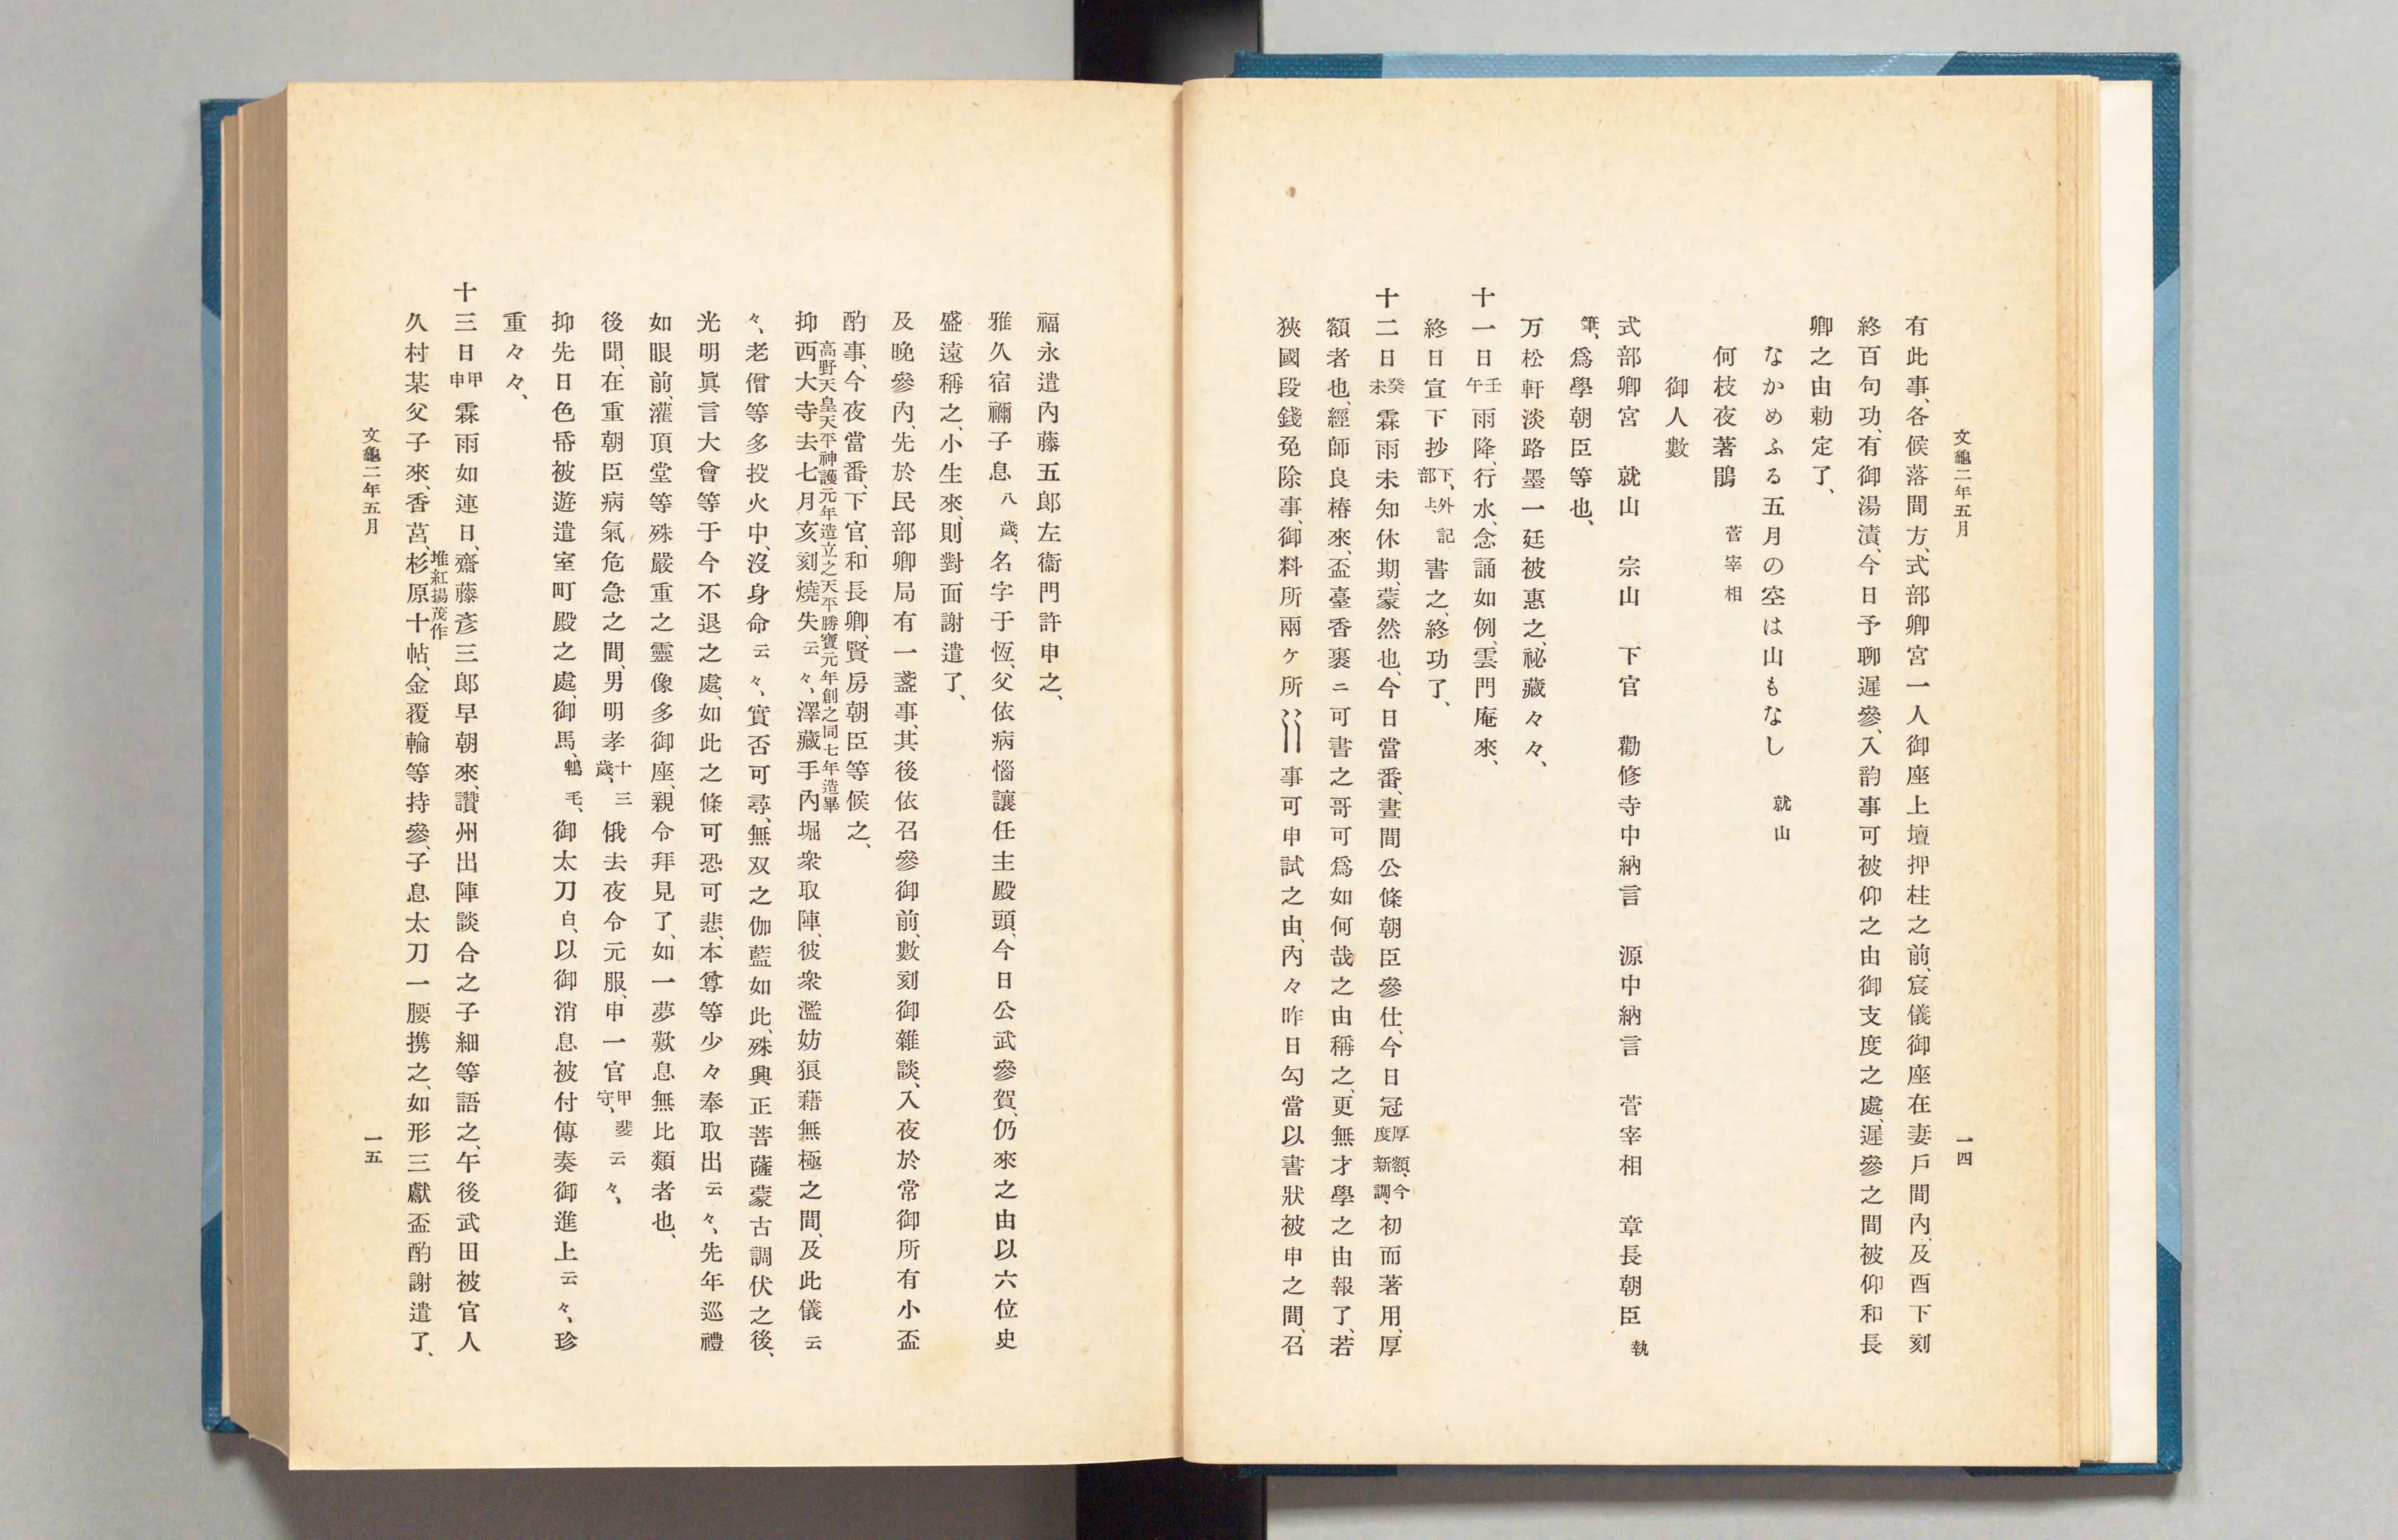 文龜二年五月
一四
有此事、各候落間方、式部卿宮一人御座上壇押柱之前、宸儀御座在妻戶間內、及酉下刻
終百句功、有御湯漬、今日予聊遲參、入韵事可被仰之由御支度之處、遲參之間被仰和長
卿之由勅定了、
なかめふる五月の空は山もなし　就山
何枝夜著鵑　菅宰相
御人數
式部卿宮　就山　宗山　下官　勸修寺中納言　源中納言　菅宰相　章長朝臣執
筆、爲學朝臣等也、
万松軒淡路墨一廷被惠之、祕藏々々、
十一日壬午雨降、行水、念誦如例、雲門庵來、
終日宣下抄下、外記部上、書之、終功了、
十二日癸未霖雨未知休期、蒙然也、今日當番、晝間公條朝臣參仕、今日冠厚額、今度新調、初而著用、厚
額者也、經師良椿來、盃臺香裹ニ可書之哥可爲如何哉之由稱之、更無才學之由報了、若
狹國段錢免除事、御料所兩ケ所〵〵事可申試之由、內々昨日勾當以書狀被申之間、召
福永遣內藤五郎左衞門許申之、
雅久宿禰子息八歲、名字于恆、父依病惱讓任主殿頭、今日公武參賀、仍來之由以六位史
盛遠稱之、小生來、則對面謝遣了、
及晚參內、先於民部卿局有一盞事、其後依召參御前、數刻御雜談、入夜於常御所有小盃
酌事、今夜當番、下官、和長卿、賢房朝臣等候之、
高野天皇天平神護元年造立之天平勝寶元年創之同七年造畢
抑西大寺去七月亥刻燒失云々、澤藏手內堀衆取陣、彼衆濫妨狼藉無極之間、及此儀云
々、老僧等多投火中、沒身命云々、實否可尋、無双之伽藍如此、殊興正菩薩蒙古調伏之後、
光明眞言大會等于今不退之處、如此之條可恐可悲、本尊等少々奉取出云々、先年巡禮
如眼前、灌頂堂等殊嚴重之靈像多御座、親令拜見了、如一夢歎息無比類者也、
後聞、在重朝臣病氣危急之間、男明孝十三歲、俄去夜令元服、申一官甲斐守、云々、
抑先日色帋被遊遣室町殿之處、御馬、鴾毛、御太刀白、以御消息被付傳奏御進上云々、珍
重々々、
十三日甲申霖雨如連日、齋藤彥三郎早朝來、讚州出陣談合之子細等語之、午後武田被官人
堆紅揚茂作
久村某父子來、香莒、杉原十帖、金覆輪等持參、子息太刀一腰携之、如形三獻盃酌謝遣了、
文龜二年五月
一五